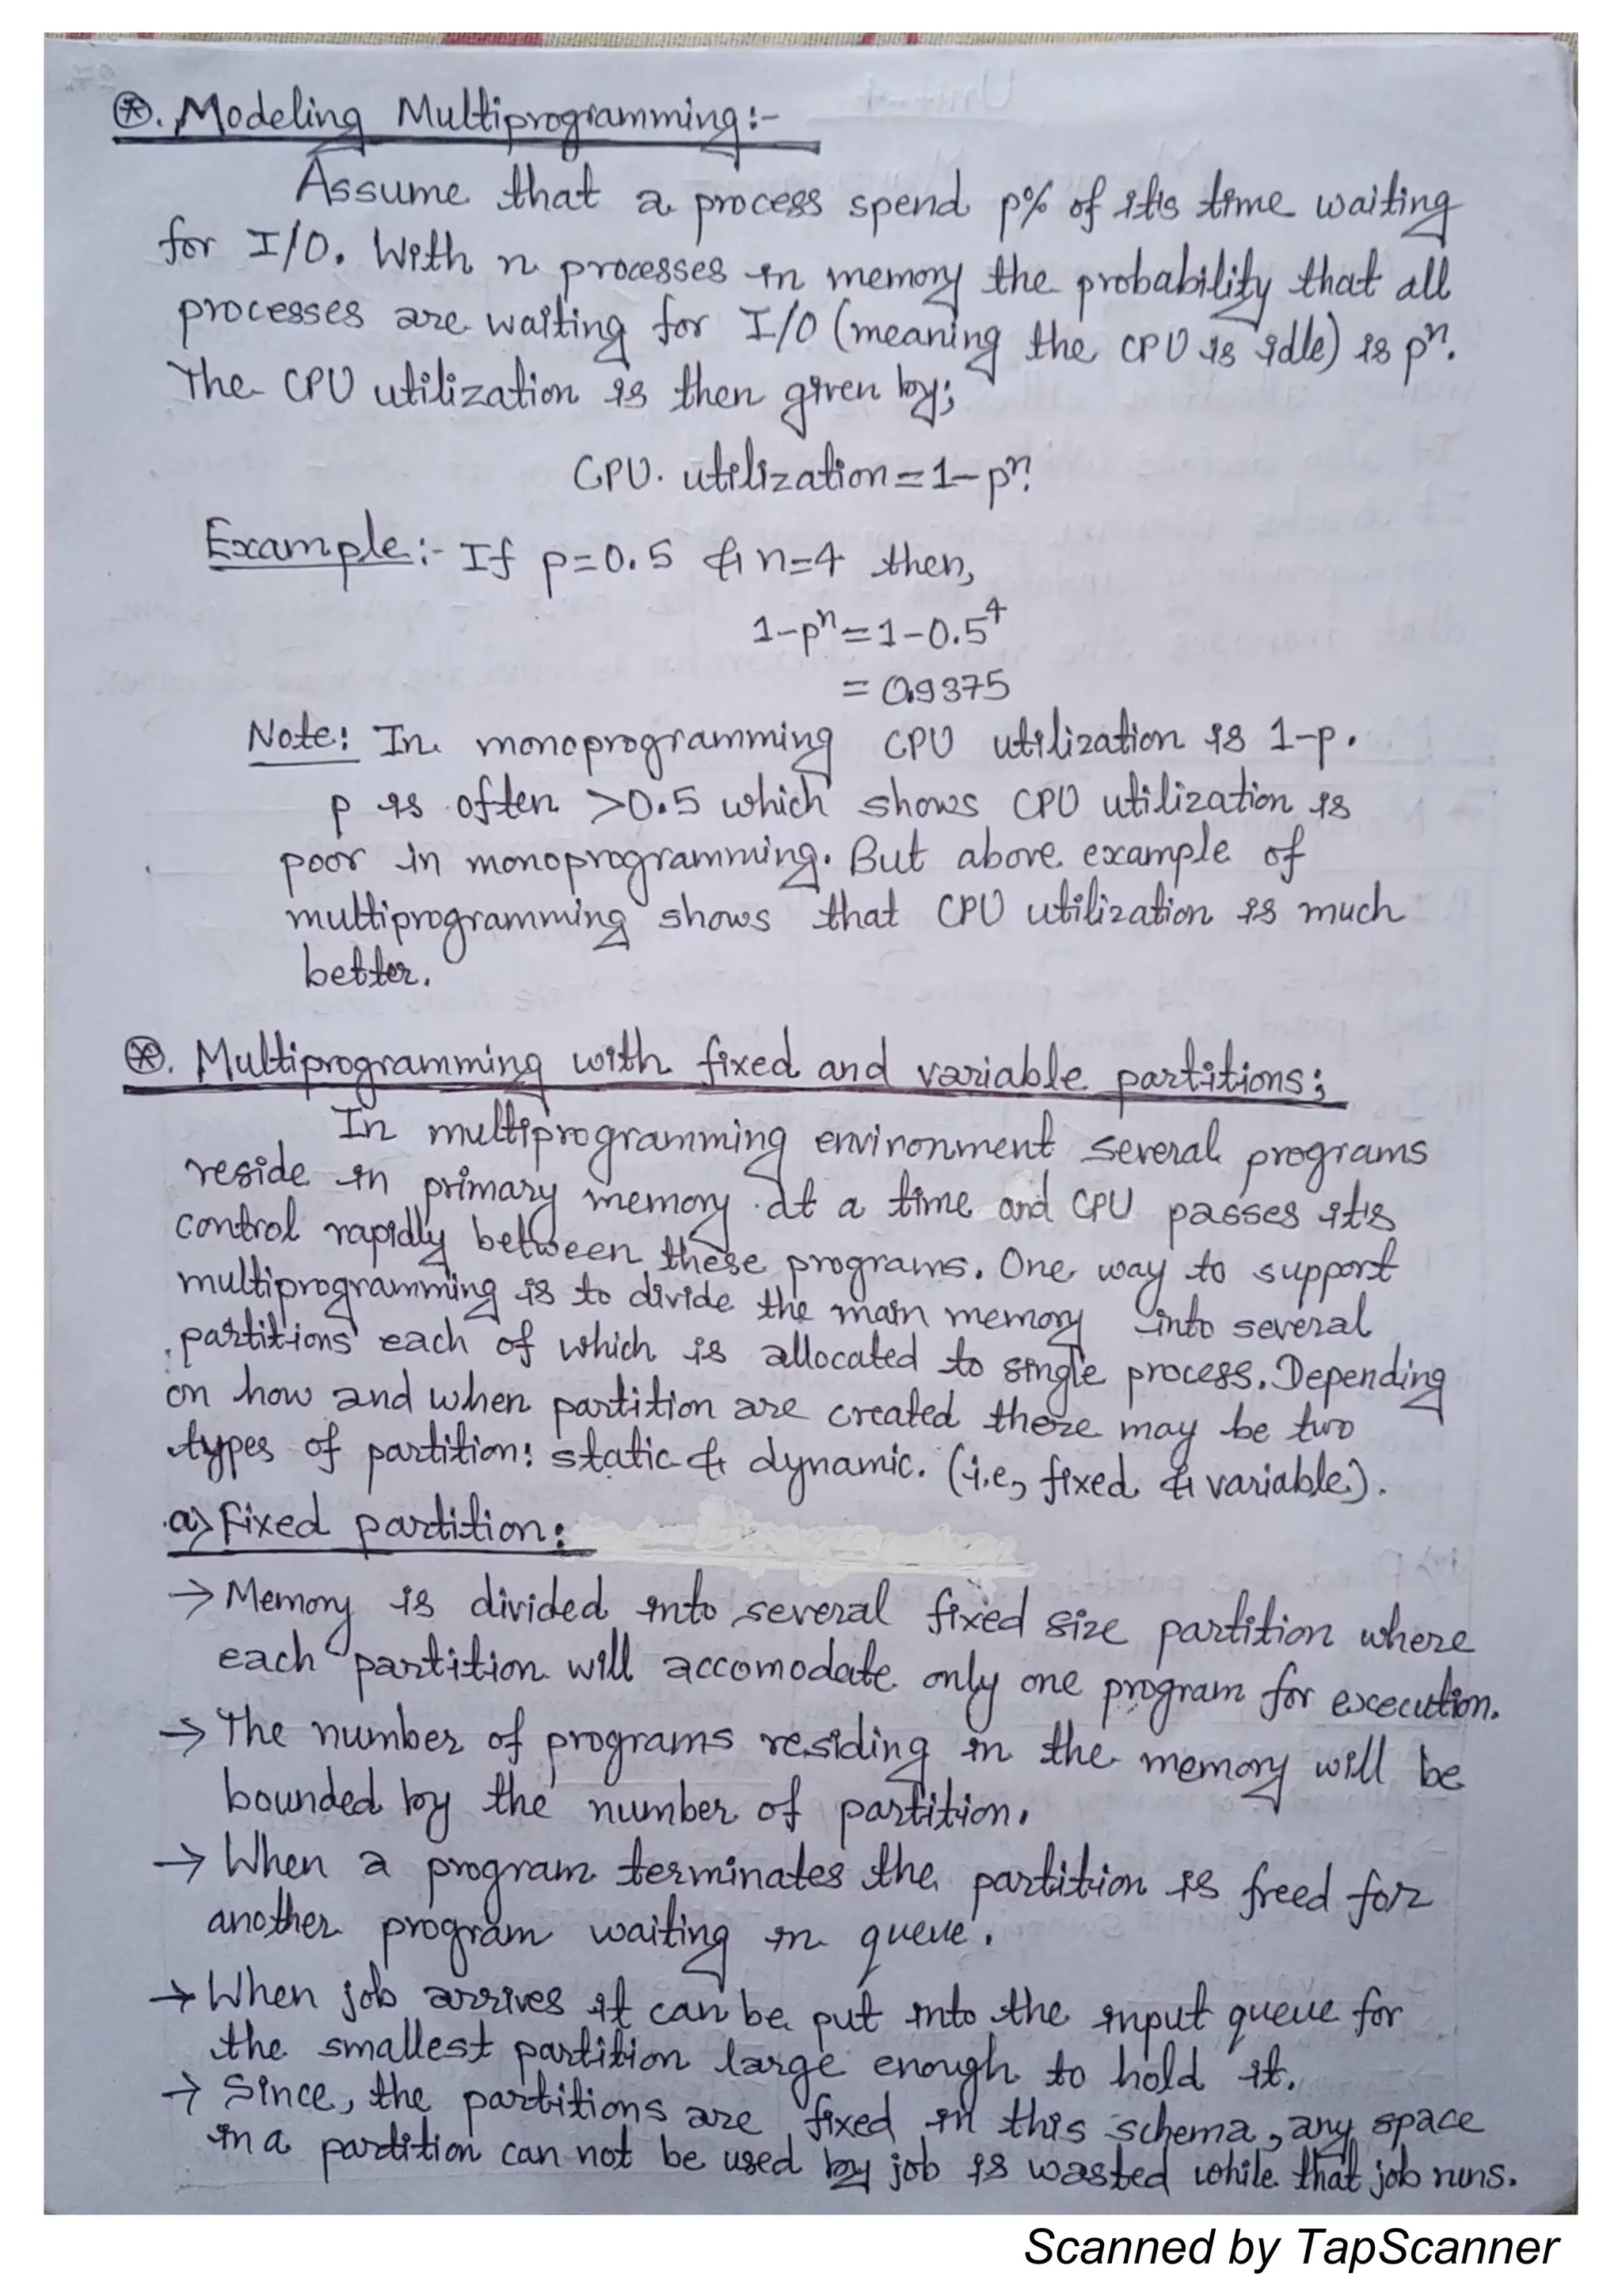 ⊛. Modeling Multiprogramming:-
Assume that a process spend p% of it's time waiting
for I/O. With n processes in memory the probability that all
processes are waiting for I/O (meaning the CPU is idle) is pⁿ.
The CPU utilization is then given by;
CPU. utilization = 1-pⁿ.
Example:- If p=0.5 & n=4 then,
1-pⁿ = 1-0.5⁴
= 0.9375
Note: In monoprogramming CPU utilization is 1-p.
p is often >0.5 which shows CPU utilization is
poor in monoprogramming. But above example of
multiprogramming shows that CPU utilization is much
better.
⊛. Multiprogramming with fixed and variable partitions:
In multiprogramming environment several programs
reside in primary memory at a time and CPU passes it's
control rapidly between these programs. One way to support
multiprogramming is to divide the main memory into several
partitions each of which is allocated to single process. Depending
on how and when partition are created there may be two
types of partition: static & dynamic. (i.e, fixed & variable).
a) Fixed partition:
→ Memory is divided into several fixed size partition where
each partition will accomodate only one program for execution.
→ The number of programs residing in the memory will be
bounded by the number of partition.
→ When a program terminates the partition is freed for
another program waiting in queue.
→ When job arrives it can be put into the input queue for
the smallest partition large enough to hold it.
→ Since, the partitions are fixed in this schema, any space
in a partition can not be used by job is wasted while that job runs.
Scanned by TapScanner